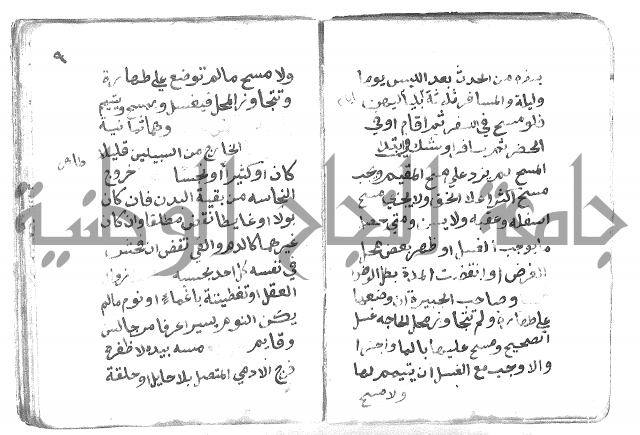 يمضه من الحدث بعد اللبس يوما
وليلة والمسافر ثلاثة بلياليهن
فلو مسح في السفر ثم اقام او في
الحضر ثم سافر او شك في ابتداء
المسح لم يزد على مسح المقيم ويجب
مسح اكثر اعلا الخف ولا يجزي مسح
اسفله وعقبه ولا يسن ومتى حصل
ما يوجب الغسل او ظهر بعض محل
الفرض او انقضت المدة بطل الوضوء
وصاحب الجبيرة ان وضعها
على طهارة ولم تتجاوز محل الحاجه غسل
الصحيح ومسح عليها بالماء واجزا
والا وجب مع الغسل ان يتيمم لها
ولا مسح
٩
ولا مسح مالم توضع على طهارة
وتتجاوز المحل فيغسل ويمسح ويتيمم
وهي ثمانية
الخارج من السبيلين قليلا
كان او كثيرا او نجسا خروج
النجاسه من بقية البدن فان كان
بولا او غايطا نقض مطلقا وان كان
غيرهما كالدم والقي نقض ان فحش
في نفس كل احد بحسبه زوال
العقل او تغطيته باغماء او نوم مالم
يكن النوم يسيرا عرفا من جالس
وقايم مسه بيده لا ظفره
فرج الادمي المتصل بلا حايل او حلقة
جامعة النجاح الوطنية